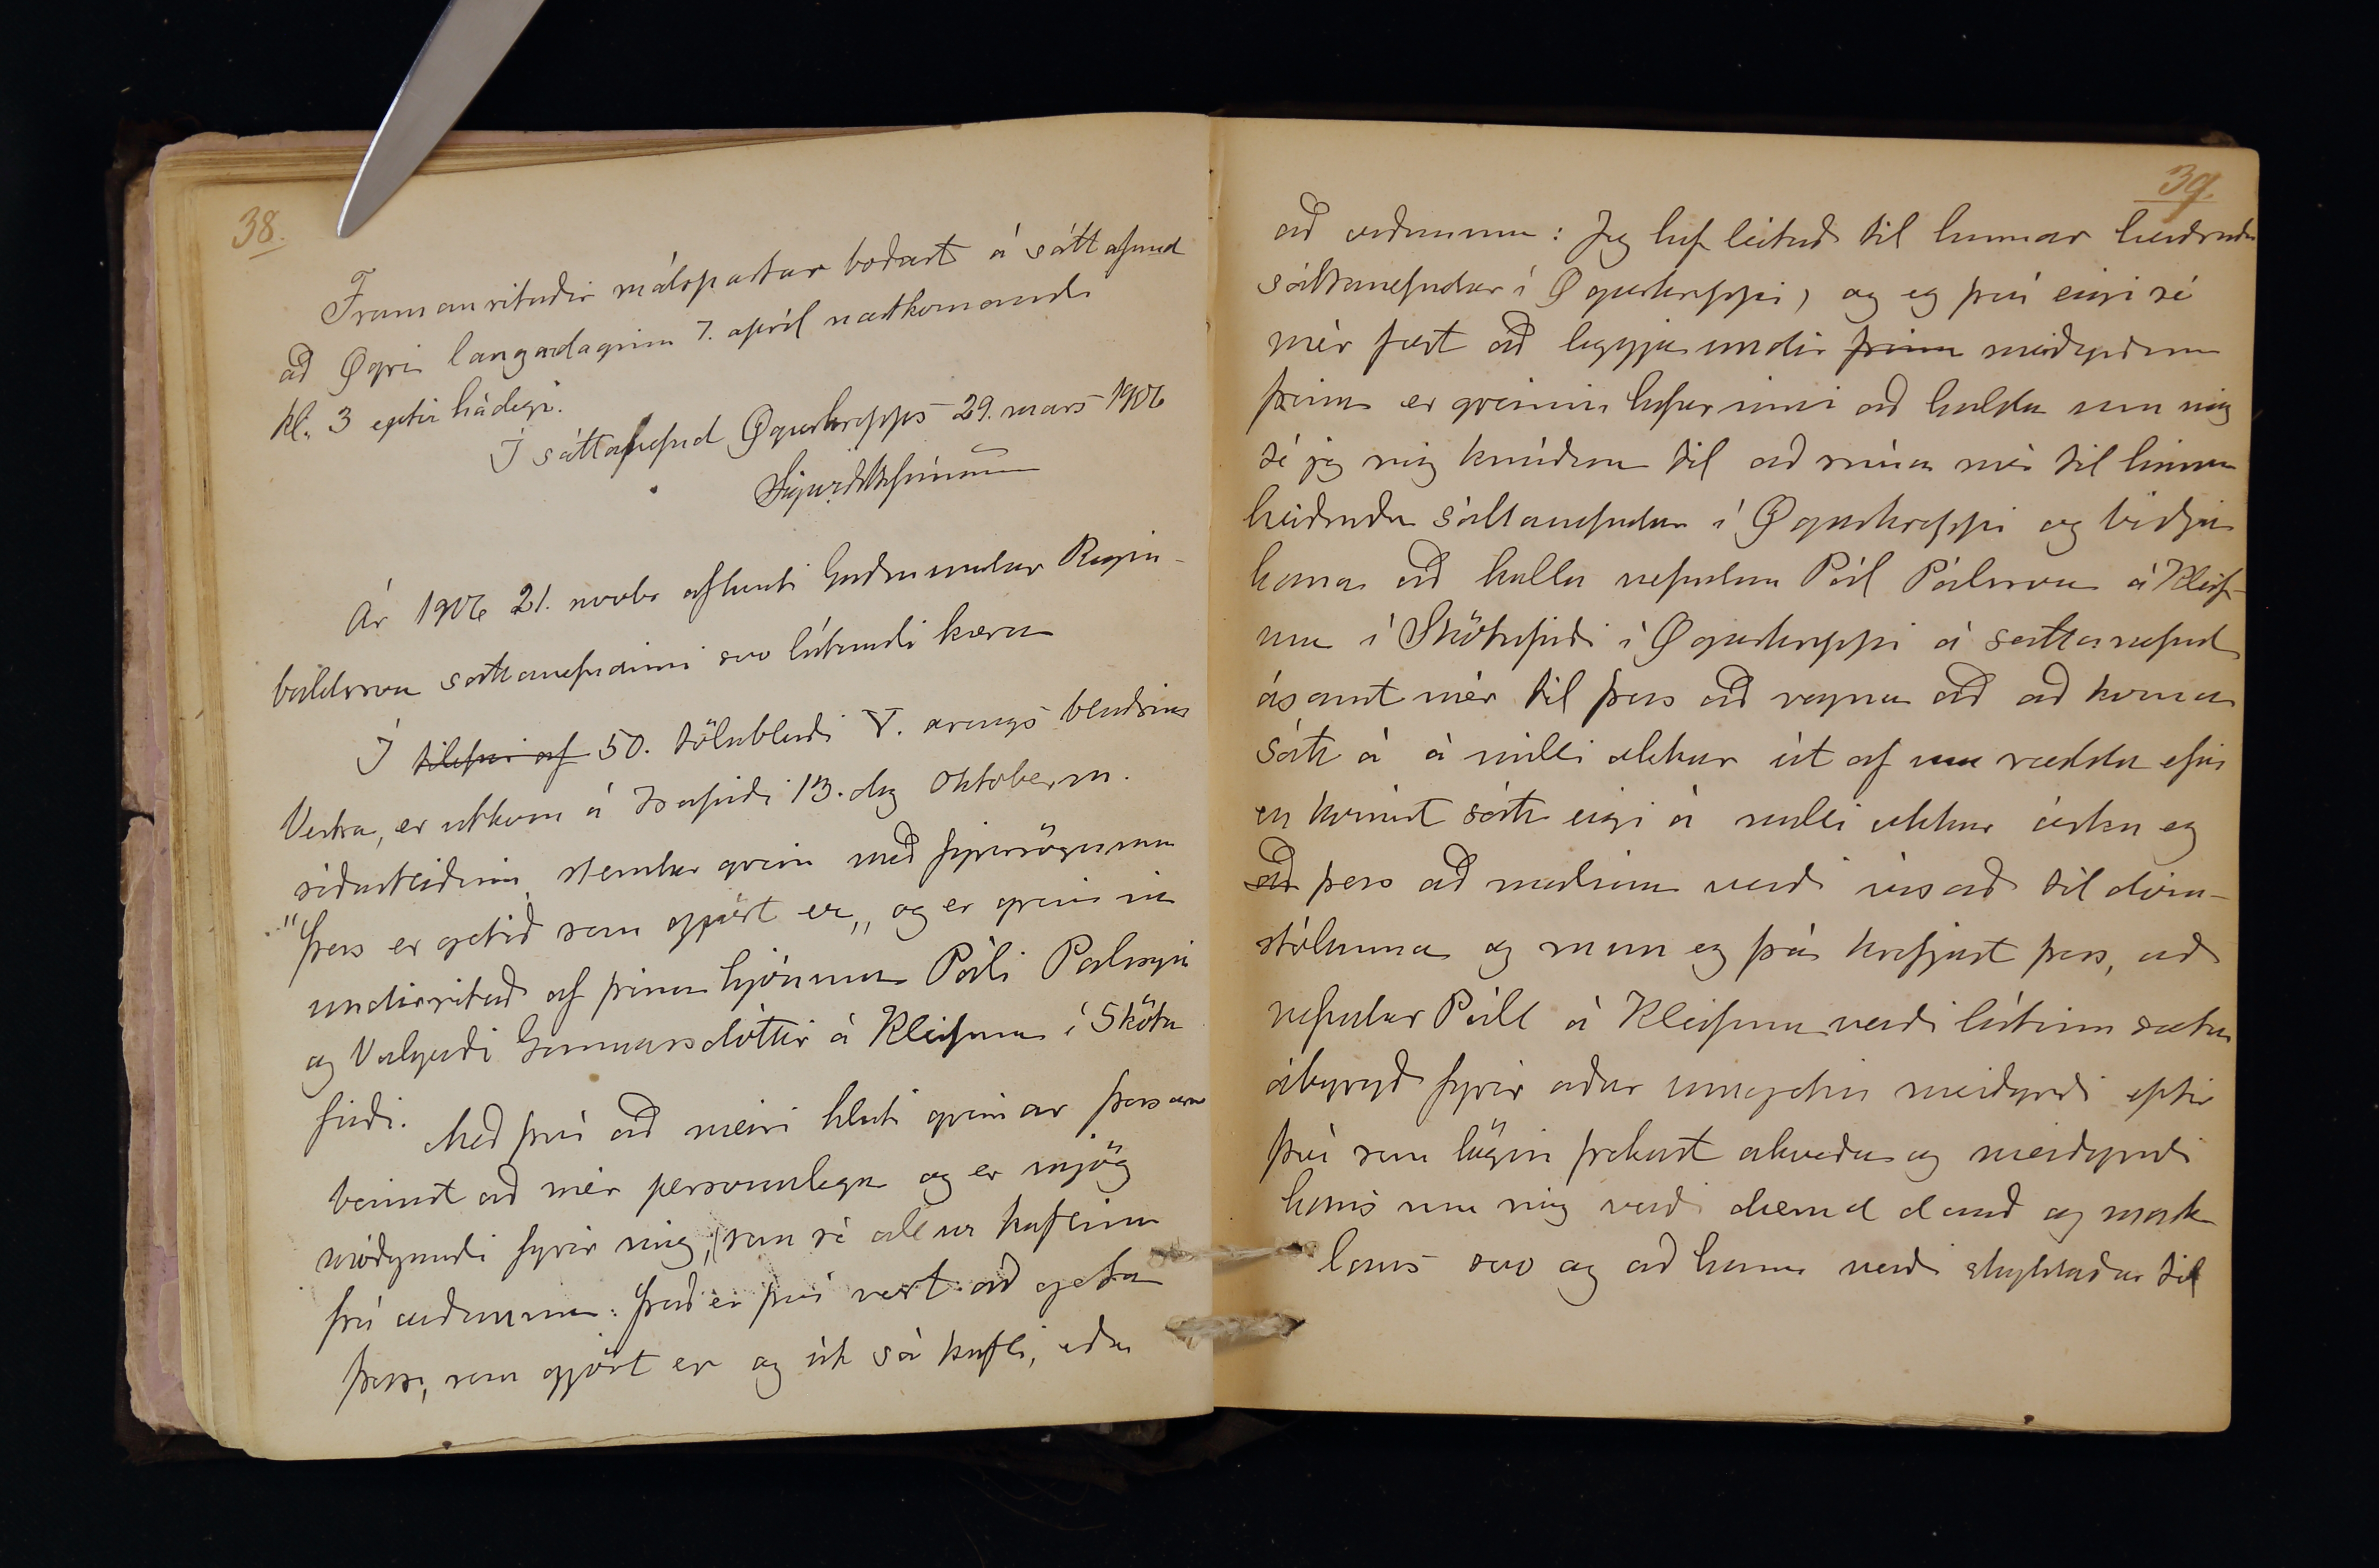 38.
Framanritaðir málspartar boðast á sáttafund
að Ögri laugardaginn 7. apríl næstkomandi
kl. 3 eptir hádegi.
Í sáttanefnd Ögurhrepps 29. mars 1906
Ár 1906 21. novbr afhenti Guðmundur Regin-
baldsson sáttanefndinni svo látandi kæru
Í tilefni af 50. tölublaði V. árangs blaðsins
Vestra, er útkom á Ísafirði 13. dag Októberm.
síðastliðinn, stendur grein með fyrirsögninni
"Þess er getið sem gjört er„ og er greinin
undirrituð af þeim hjónum Páli Pálssyni
og Valgerði Gunnarsdóttir á Kleifum í Skötu
firði.
Með því að meiri hluti greinar þessarar
beinist að mér persónulega og er mjög
móðgandi fyrir mig, sem sé allur kaflinn
frá orðunum: Það er því vert að geta
þess, sem gjört er og út sá kafli, eða
39.
að orðunum: Jeg hef leitað til hinnar heiðruðu
sáttanefndar í Ögurhreppi, og eg því eigi sé
mér fært að leggja undir þeim meiðyrðum
þeim er greinin hefur inni að halda um mig
sé jeg mig knúðan til að snúa mér til hinnar
heiðruðu sáttanefndar í Ögurhreppi og biðja
hana að kalla nefndan Pál Pálsson á Kleif-
um í Skötufirði í Ögurhreppi á sáttanefnd
ásamt mér til þess að reyna að að koma
sátt á á milli okkar út af um ræddu efni
en komist sátt eigi á milli okkar óska eg
að þess að málinu verði vísað til dóm-
stólanna og mun eg þá krefjast þess, að
nefndur Páll á Kleifum verði látinn sæta
ábyrgð fyrir áður umgetin meiðyrði eptir
því sem lögin frekast ákveða og meiðyrði
hans um mig verði dæmd dauð og mark
laus svo og að hann verði skyldaður til